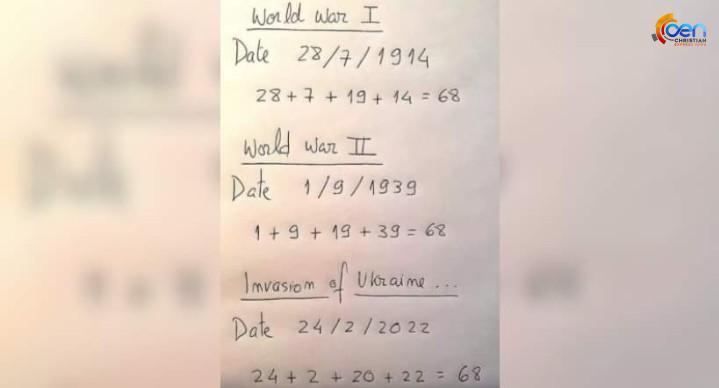 World War I
Date 28/7/1914
28 + 7 + 19 + 14 = 68
World War II
Date 1/9/1939
1 + 9 + 19 + 39 = 68
Invasion of Ukraine ...
Date 24/2/2022
24 + 2 + 20 + 22 = 68
CEN
CHRISTIAN
EXPRESS NEWS